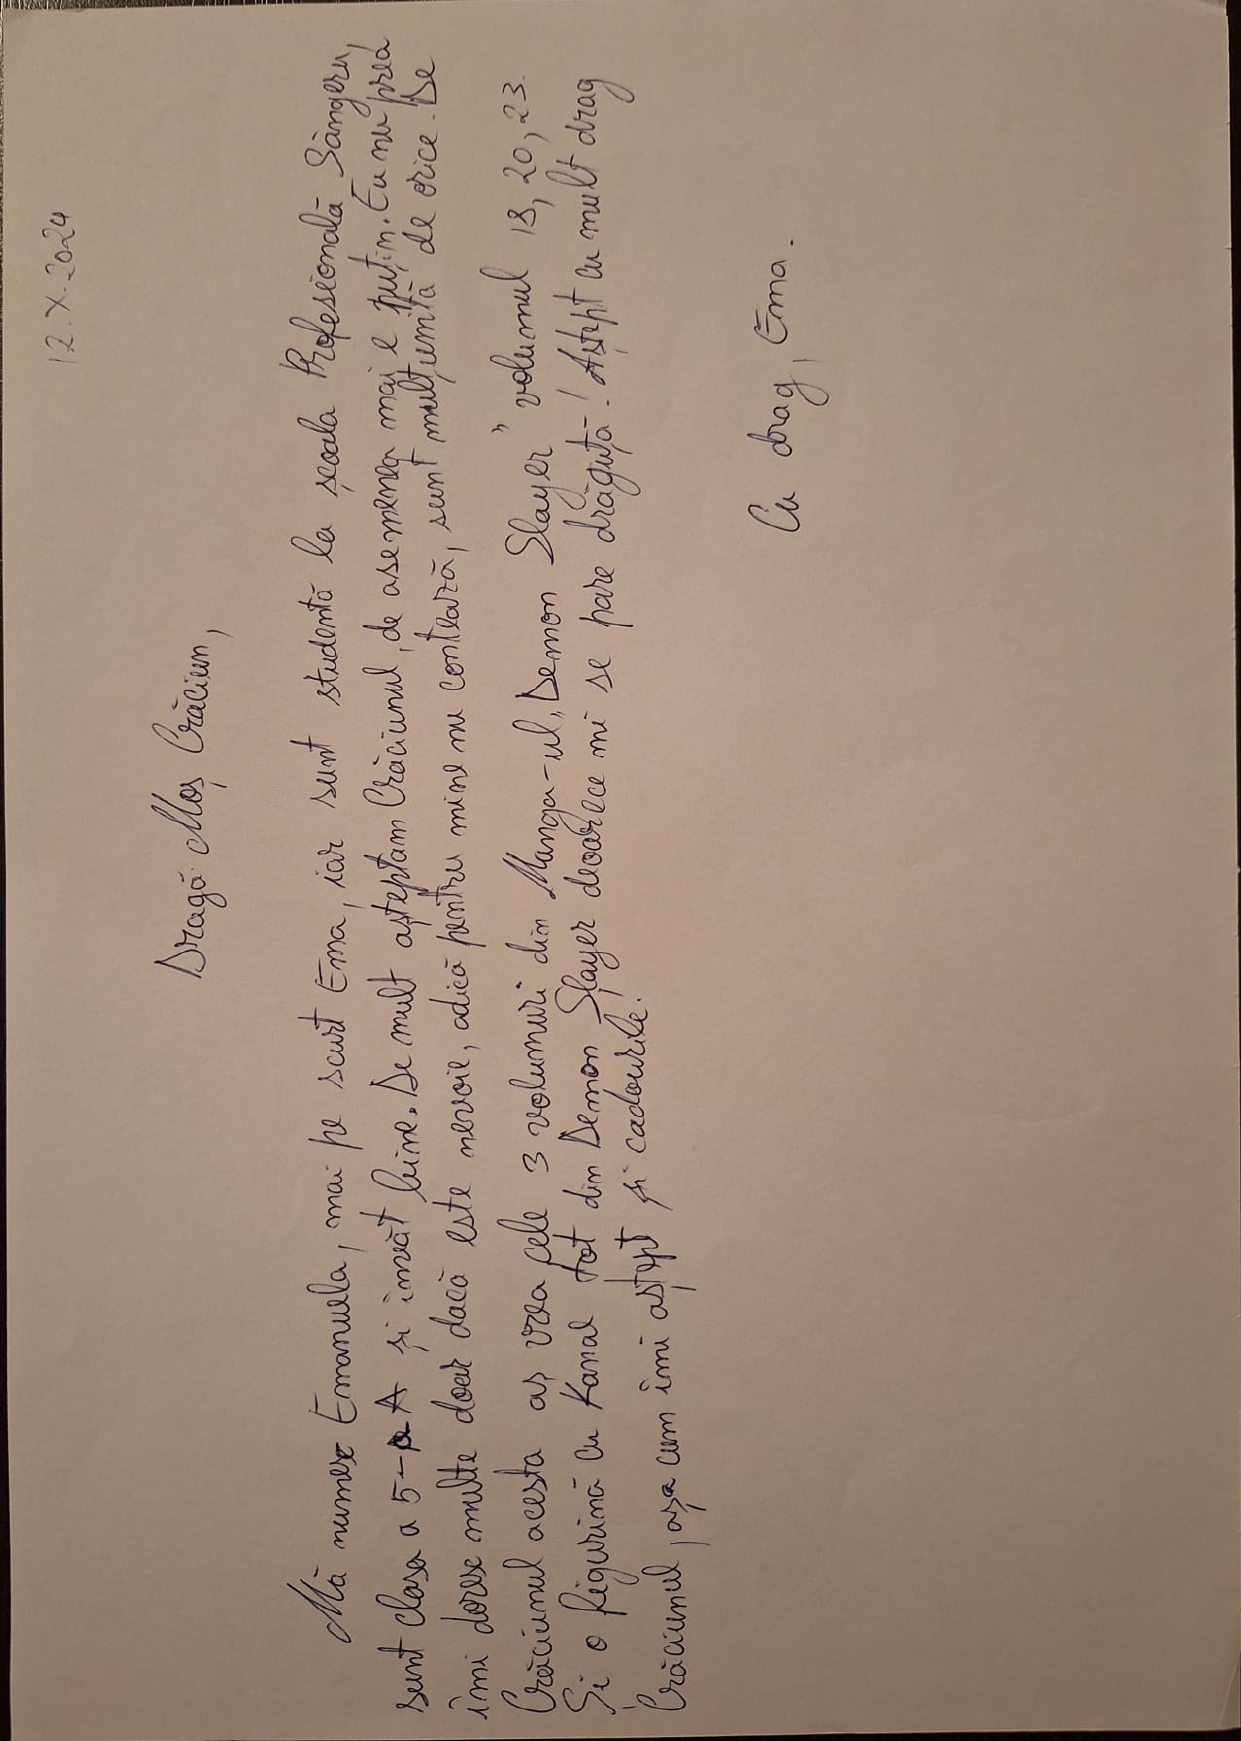 12.X.2024
Dragă Moș Crăciun,
Mă numesc Emanuela, mai pe scurt Ema, iar sunt studentă la școala Profesională Sângeru,
sunt clasa a 5-a A și învăt bine. De mult așteptam Crăciunul, de asemenea mai e puțin. Eu nu prea
îmi doresc multe doar dacă este nevoie, adică pentru mine nu contează, sunt mulțumită de orice. De
Crăciunul acesta aș vrea cele 3 volumuri din Manga-ul „Demon Slayer” volumul 18, 20, 23.
Și o figurină cu Kanae tot din Demon Slayer deoarece mi se pare drăguță! Aștept cu mult drag
Crăciunul, așa cum îmi aștept și cadourile!
Cu drag, Ema.